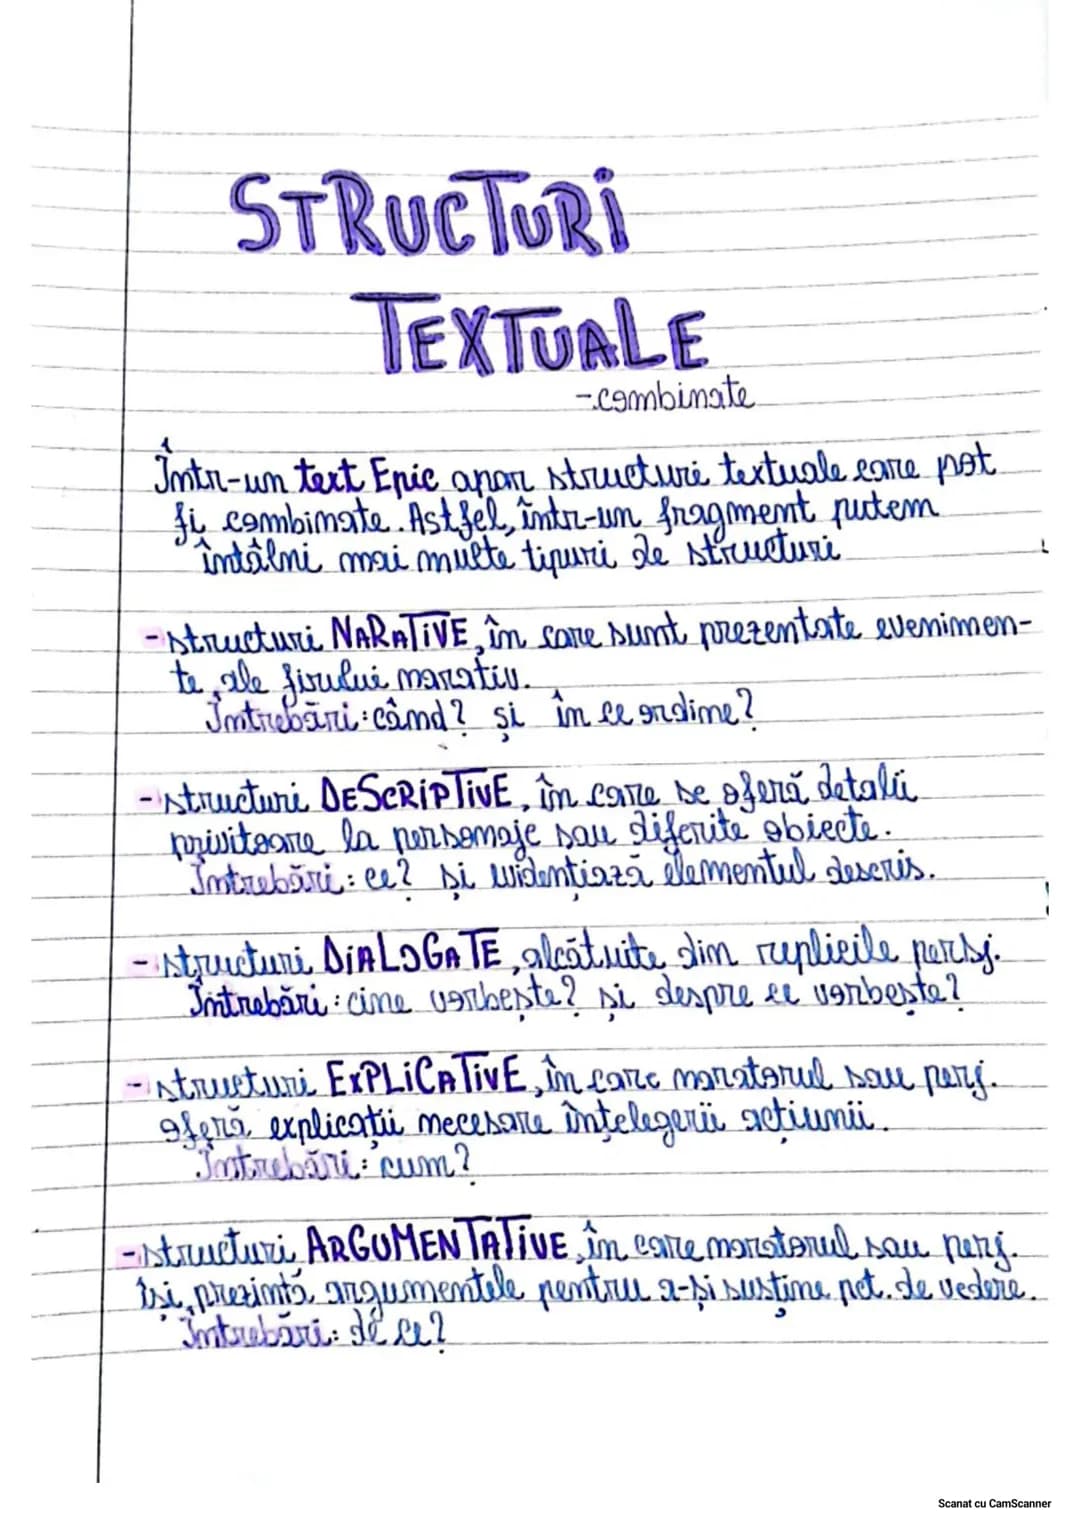 STRUCTURI
TEXTUALE
-combinate
Într-un text Epic apar structuri textuale care pot
fi combinate. Astfel, într-un fragment putem
întâlni mai multe tipuri de structuri
-structuri NARATIVE, în care sunt prezentate evenimen-
te ale firului narativ.
Întrebări: când? și în ce ordine?
-structuri DESCRIPTIVE, în care se oferă detalii
privitoare la personaje sau diferite obiecte.
Întrebări: ce? și evidențiază elementul descris.
-structuri DIALOGATE, alcătuite din replicile persj.
Întrebări: cine vorbește? și despre ce vorbește?
-structuri EXPLICATIVE, în care naratorul sau perj.
oferă explicații necesare înțelegerii acțiunii.
Întrebări: cum?
-structuri ARGUMENTATIVE, în care naratorul sau perj.
își prezintă argumentele pentru a-și susține pct. de vedere.
Întrebări: de ce?
Scanat cu CamScanner